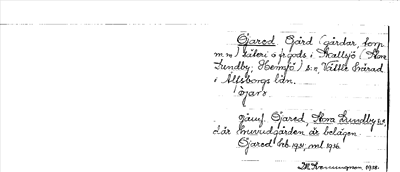 Öjared. Gård (gårdar, torp
m m) säteri o frgods i Skallsjö (Stora
Lundby, Hemsjö) s:n, Vättle härad
i Älfsborgs län.
Öjared
Jämf. Öjared, Stora Lundby s:n,
där huvudgården är belägen.
Öjared hb 1951, ml 1936.
1938.